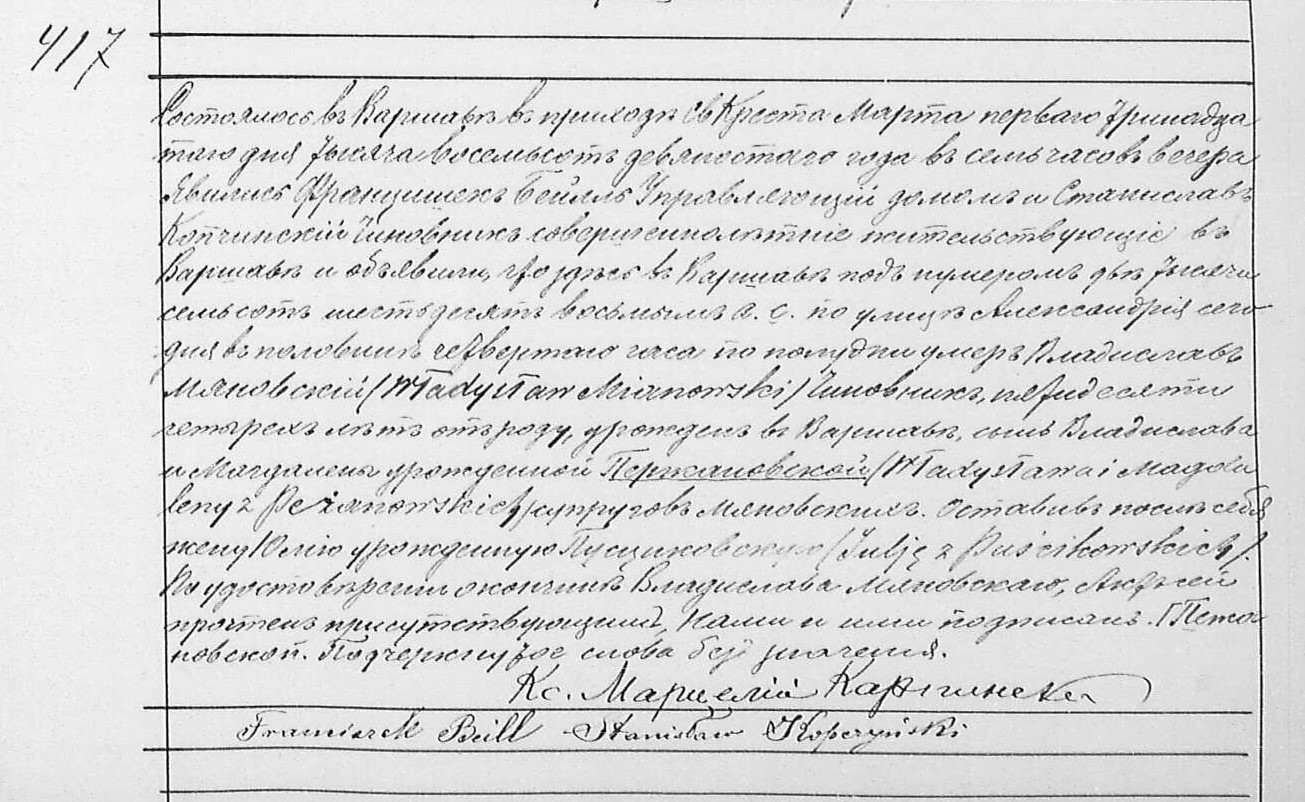 417
Состоялось въ Варшавѣ въ приходѣ Св Креста Марта перваго /тринадца
таго дня тысяча восемьсотъ девяностаго года въ семь часовъ вечера
Явились Францишекъ Бейлль Управляющій домомъ и Станиславъ
Копчинскій Чиновникъ совершеннолѣтніе жительствующіе въ
Варшавѣ и объявили, что здѣсь въ Варшавѣ подъ нумеромъ двѣ тысячи
семьсотъ шестьдесятъ восьмымъ а. с. по улицѣ Александрія сего
дня въ половинѣ четвертаго часа по полудни умеръ Владиславъ
Мяновскій /Władysław Mianowski/ Чиновникъ, пятидесяти
четырехъ лѣтъ отъ роду, урожденъ въ Варшавѣ, сынъ Владислава
и Магдалены урожденной Пержановской /Władysława i Magda
leny z Peżanowskich/ супруговъ Мяновскихъ. Оставивъ послѣ себя
жену Юлію урожденную Пусциковскую /Julję z Puścikowskich/.
По удостовѣреніи о кончинѣ Владислава Мяновскаго, Актъ сей
прочтенъ присутствующимъ, Нами и ими подписанъ.
новской. Подчеркнутое слова безъ значенія.
Кс. Марцелій
Franciszek Beill Stanisław Kopczyński